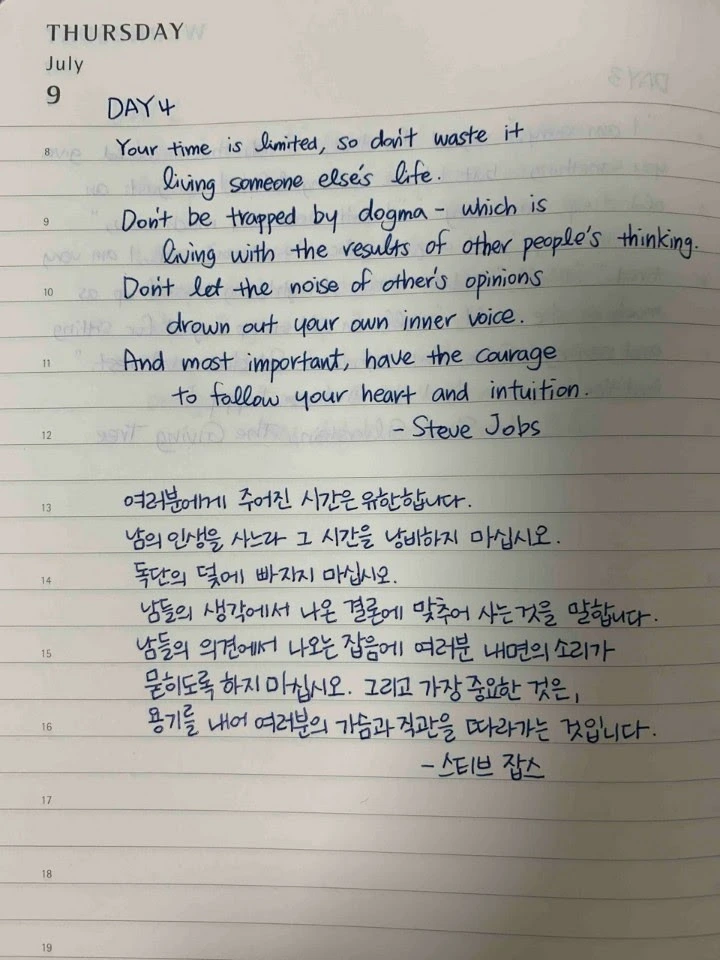 THURSDAY
July
9
DAY 4
8
Your time is limited, so don't waste it
living someone else's life.
9
Don't be trapped by dogma - which is
living with the results of other people's thinking.
10
Don't let the noise of other's opinions
drown out your own inner voice.
11
And most important, have the courage
to follow your heart and intuition.
12
- Steve Jobs
13
여러분에게 주어진 시간은 유한합니다.
남의 인생을 사느라 그 시간을 낭비하지 마십시오.
14
독단의 덫에 빠지지 마십시오.
남들의 생각에서 나온 결론에 맞추어 사는 것을 말합니다.
15
남들의 의견에서 나오는 잡음에 여러분 내면의 소리가
묻히도록 하지 마십시오. 그리고 가장 중요한 것은,
16
용기를 내어 여러분의 가슴과 직관을 따라가는 것입니다.
- 스티브 잡스
17
18
19